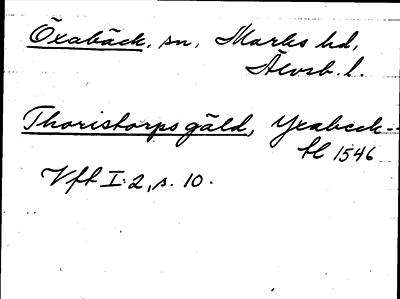 Öxabäck, sn, Marks hd,
Älvsb. l.
Thoristorps gäld, Yxabeck-
hl 1546
Vft I:2, s. 10.